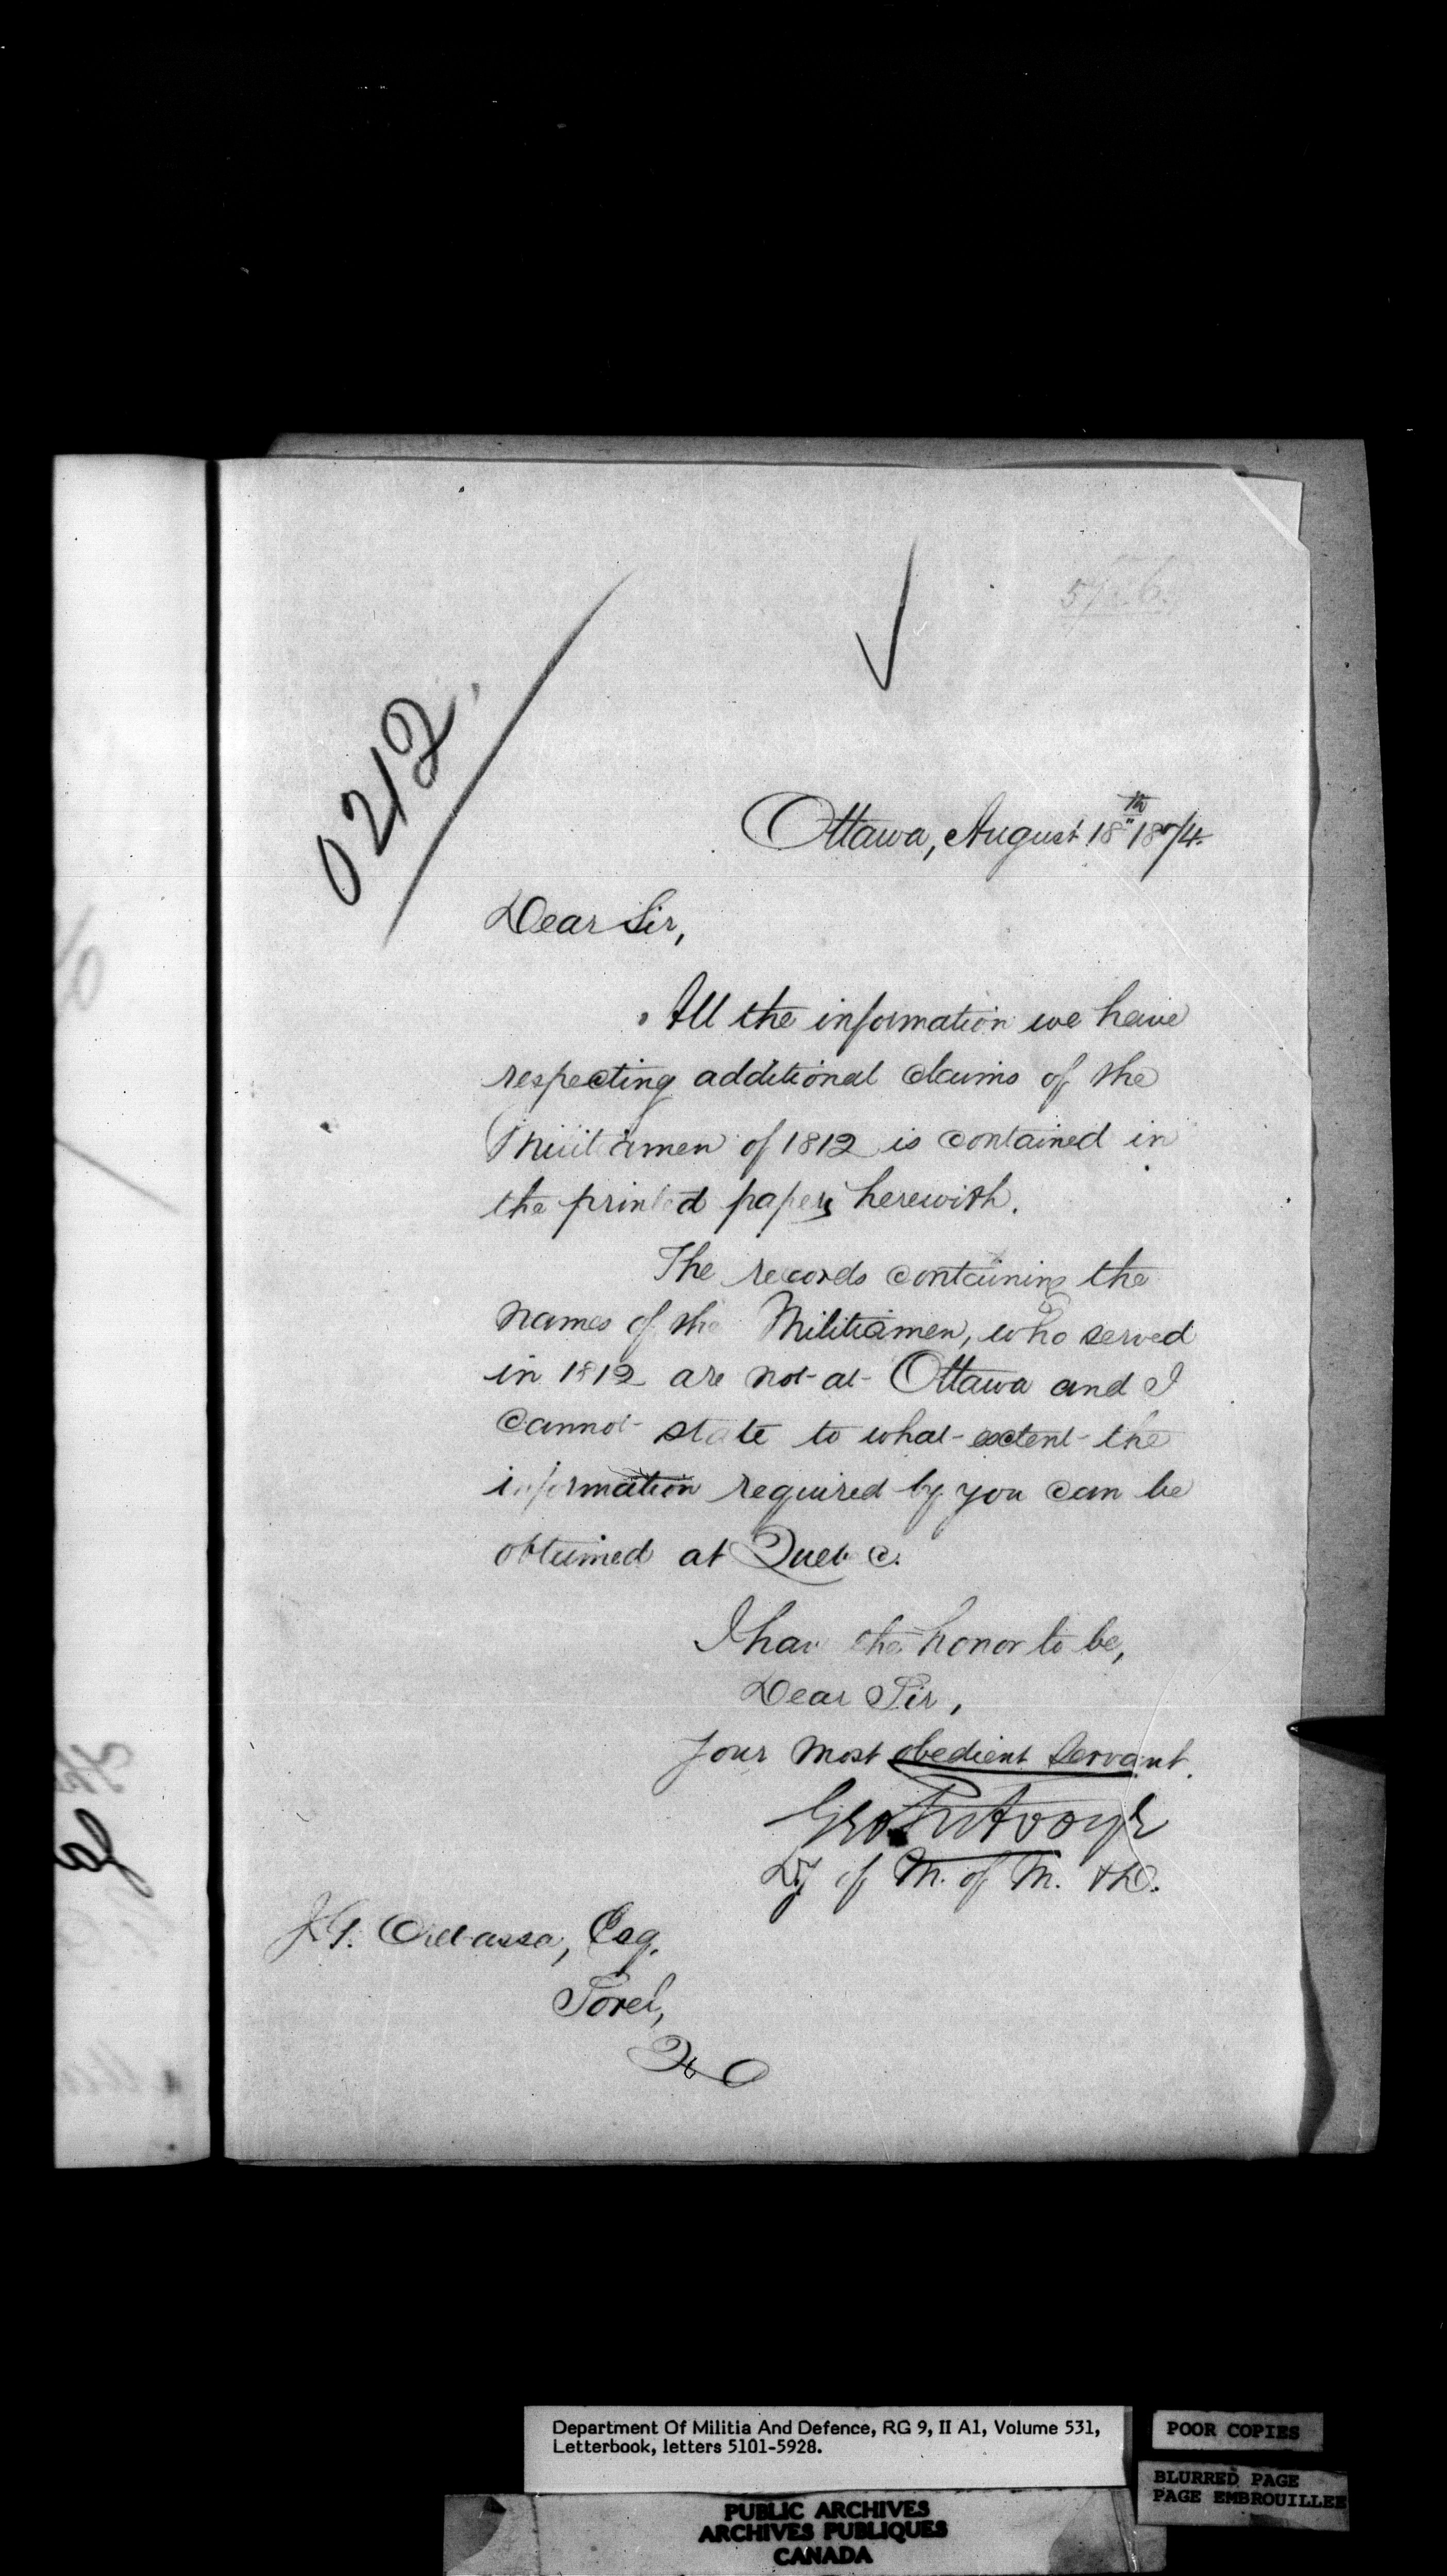 0212.
Ottawa, August 18th 1874.
Dear Sir,
All the information we have
respecting additional claims of the
Militiamen of 1812 is contained in
the printed papers herewith.
The records containing the
names of the Militiamen, who served
in 1812 are not at Ottawa and I
cannot state to what extent the
information required by you can be
obtained at Quebec.
I have the honor to be,
Dear Sir,
Your most obedient Servant.
Geo Futvoye
Dy of M. of M. & D.
J. G. Crebassa, Esq.
Sorel,
Department Of Militia And Defence, RG 9, II A1, Volume 531,
Letterbook, letters 5101-5928.
POOR COPIES
BLURRED PAGE
PAGE EMBROUILLEE
PUBLIC ARCHIVES
ARCHIVES PUBLIQUES
CANADA